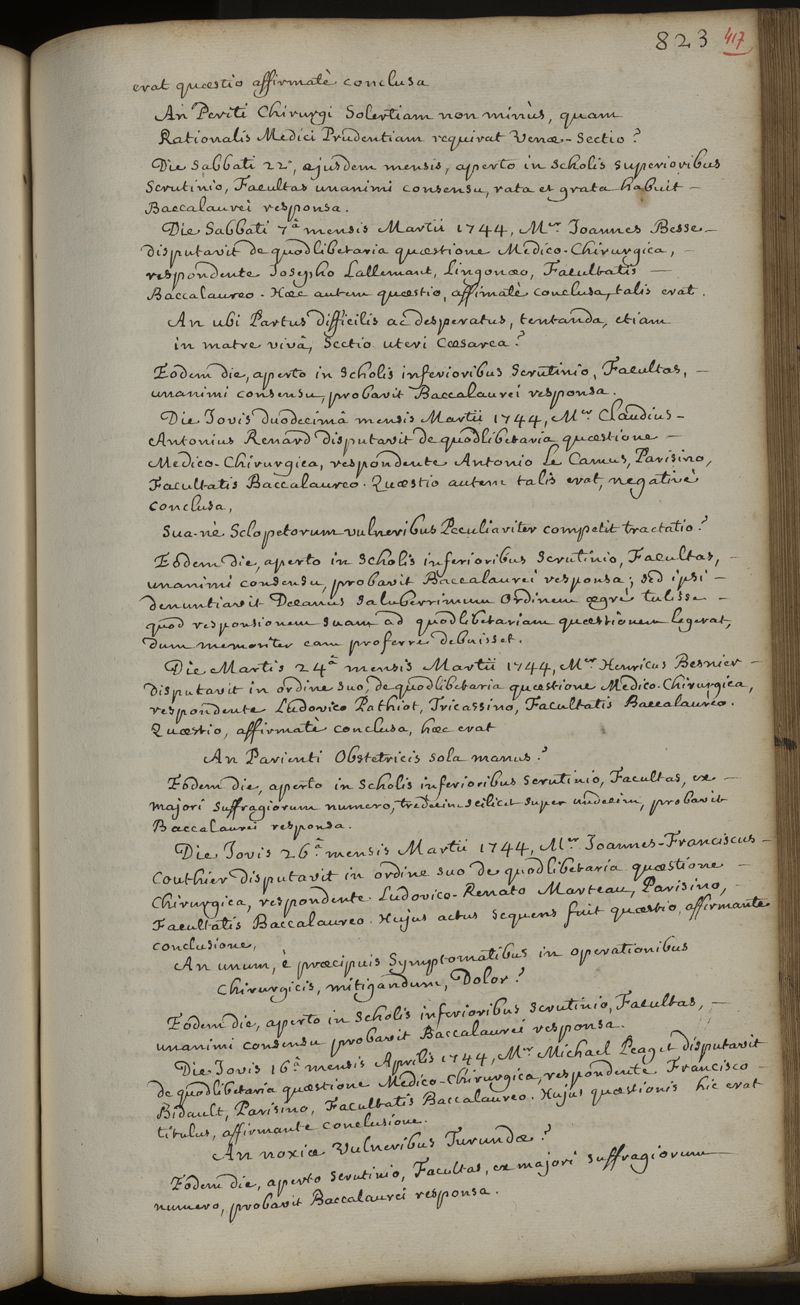 823 417
erat quæstio affirmatè conclusa
An Periti Chirurgi Solertiam non minùs, quam
Rationalis Medici Prudentiam requirat Venæ-Sectio?
Die Sabbati 22ª, ejusdem mensis, aperto in Scholis superioribus
Scrutinio, Facultas unanimi consensu, rata et grata habuit —
Baccalaurei responsa.
Die Sabbati 7ª mensis Martii 1744, Mer Joannes Besse —
disputavit de quodlibetaria quæstione Medico-Chirurgica, —
respondente Josepho Lallemant, Lingonæo, Facultatis —
Baccalaureo. Hæc autem quæstio, affimatè conclusa, talis erat.
An ubi Partus difficilis ac desperatus, tentanda, etiam
in matre vivâ, Sectio uteri Cæsarea?
Eodem die, aperto in Scholis inferioribus Scrutinio, Facultas, —
unanimi consensu, probavit Baccalaurei responsa.
Die Jovis duodecimâ mensis Martii 1744, Mer Claudius-
Antonius Renard disputavit de quodlibetaria quæstione —
Medico-Chirurgica, respondente Antonio Le Camus, Parisino,
Facultatis Baccalaureo. Quæstio autem talis erat, negativè
conclusa,
Sua-nè Sclopetorum vulneribus Peculiariter competit tractatio?
Eodem die, aperto in Scholis inferioribus Scrutinio, Facultas, —
unanimi consensu, probavit Baccalaurei responsa; sed ipsi —
denuntiavit Decanus Saluberrimum Ordinem ægrè tulisse —
quod responsionem suam ad quodlibetariam quæstionem legerat,
dum memoriter eam proferre debuisset.
Die Martis 24ª mensis Martii 1744, Mer Henricus Besnier —
disputavit in ordine suo, de quodlibetaria quæstione Medico-Chirurgica,
respondente Ludovico Pathiot, Tricassino, Facultatis Baccalaureo.
Quæstio, affirmatè conclusa, hæc erat
An Parienti Obstetricis sola manus?
Eodem die, aperto in Scholis inferioribus Scrutinio, Facultas, ex —
majori suffragiorum numero, tredecim scilicet super undecim, probavit
Baccalaurei responsa.
Die Jovis 26ª mensis Martii 1744, Mer Joannes-Franciscus —
Couthier disputavit in ordine suo de quodlibetaria quæstione —
Chirurgica, respondente Ludovico-Renato Marteau, Parisino, —
Facultatis Baccalaureo. Hujus actus sequens fuit quæstio, affirmante
conclusione,
An unum, è præcipuis Symptomatibus in operationibus
Chirurgicis, mitigandum, Dolor?
Eodem die, aperto in Scholis inferioribus Scrutinio, Facultas, —
unanimi consensu probavit Baccalaurei responsa.
Die Jovis 16ª mensis Aprilis 1744, Mer Michael Peaget disputavit
de quodlibetaria quæstione Medico-Chirurgica, respondente Francisco —
Bidault, Parisino, Facultatis Baccalaureo. Hujus quæstionis hic erat
titulus, affirmante conclusione.
An noxiæ Vulneribus Turundæ?
Eodem die, aperto Scrutinio, Facultas, ex majori suffragiorum —
numero, probavit Baccalaurei responsa.